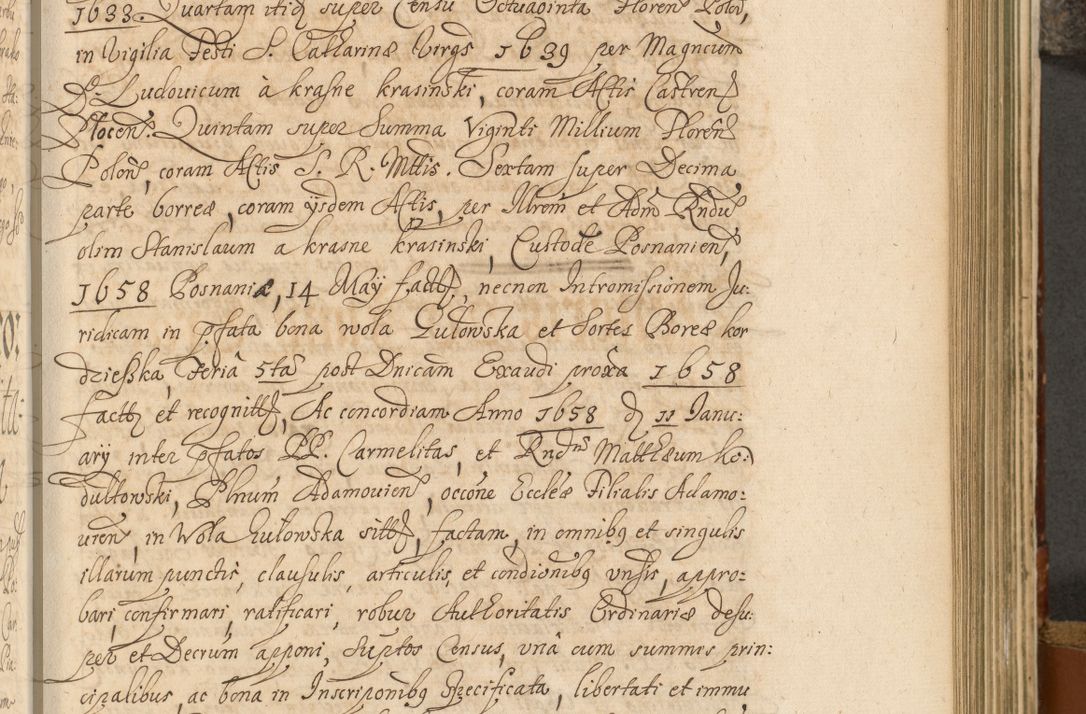 1633. Quartam itiđ super Censu Octuaginta floren Polon,
in Vigilia Festi S. Catharinæ Virgs 1639 per Magncum
Dn Ludovicum à krasne krasinski, coram Actis Castren
Plocen. Quintam super Summa Viginti Millium Floren
Polon, coram Actis S. R. Mttis. Sextam super Decima
parte borreæ, coram ysdem Actis, per Illrem et Adm Rndu
olim Stanislaum a krasne krasinski, Custode Posnanien,
1658 Posnaniæ, 14 May factt, necnon Intromissionem Ju:
ridicam in pfata bona wola Gulowska et Sortes Boreæ kor
dzieszka, Feria 5ta post Dnicam Exaudi proxa 1658
factt et recognitt, Ac concordiam Anno 1658 d 11 Janu:
ary inter pfatos PP. Carmelitas, et Rndm Mattheum ko:
dultowski, Plnum Adamovien, occone Eccleæ Filialis Adamo:
vien, in Wola Gulowska sitt, factam, in omnibq et singulis
illarum punctis, clausulis, articulis, et condionibq vnsis, appro:
bari, confirmari, ratificari, robur Authoritatis Ordinariæ desu:
per et Decrum apponi, suptos Census, vnâ cum summis prin:
cipalibus, ac bona in Inscriponibq specificata, libertati et immu